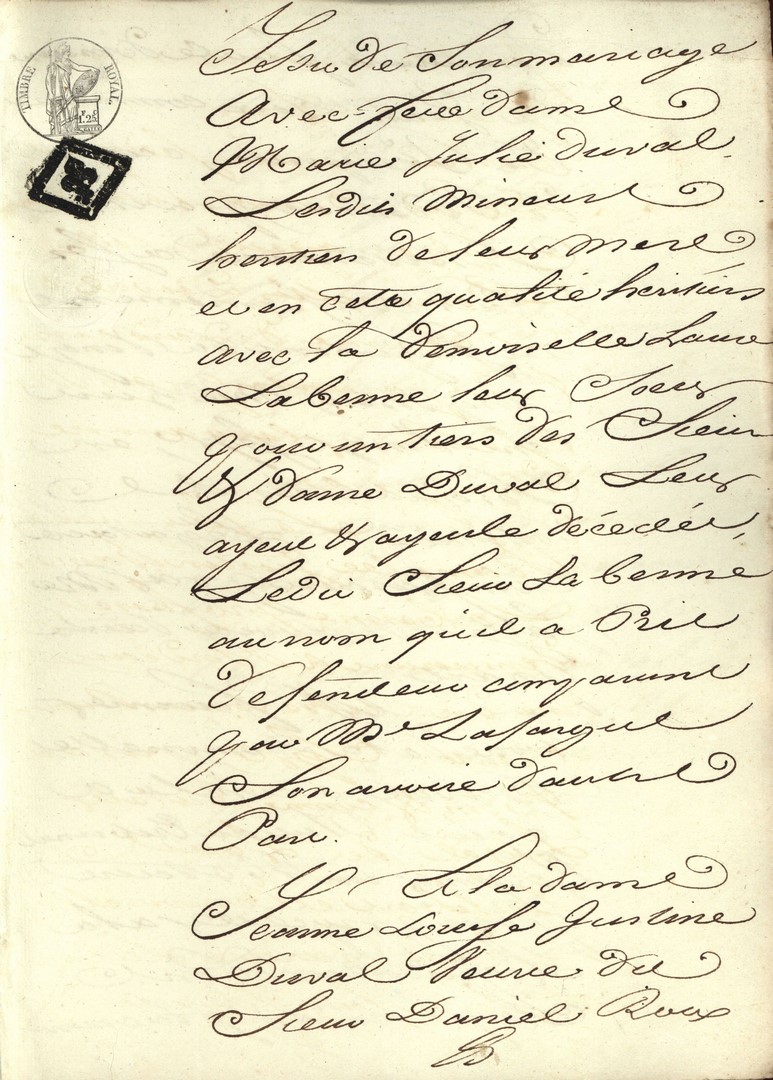 TIMBRE ROYAL
1.25
Issu de Son mariage
Avec feue dame
Marie Julie Duval
Lesdits Mineurs
heritiers de leur Mere
et en cete qualité heritiers
avec la demoiselle Laure
Labenne leur Soeur
pour un tiers des Sieur
& dame Duval Leur
ayeul & ayeule décedés,
Ledit Sieur Labenne
au nom quil a Pris
défendeur comparant
par Me Lafargue
Son avoué d'autre
Part.
Et la dame
Jeanne Louise Justine
Duval Veuve du
Sieur Daniel Roux